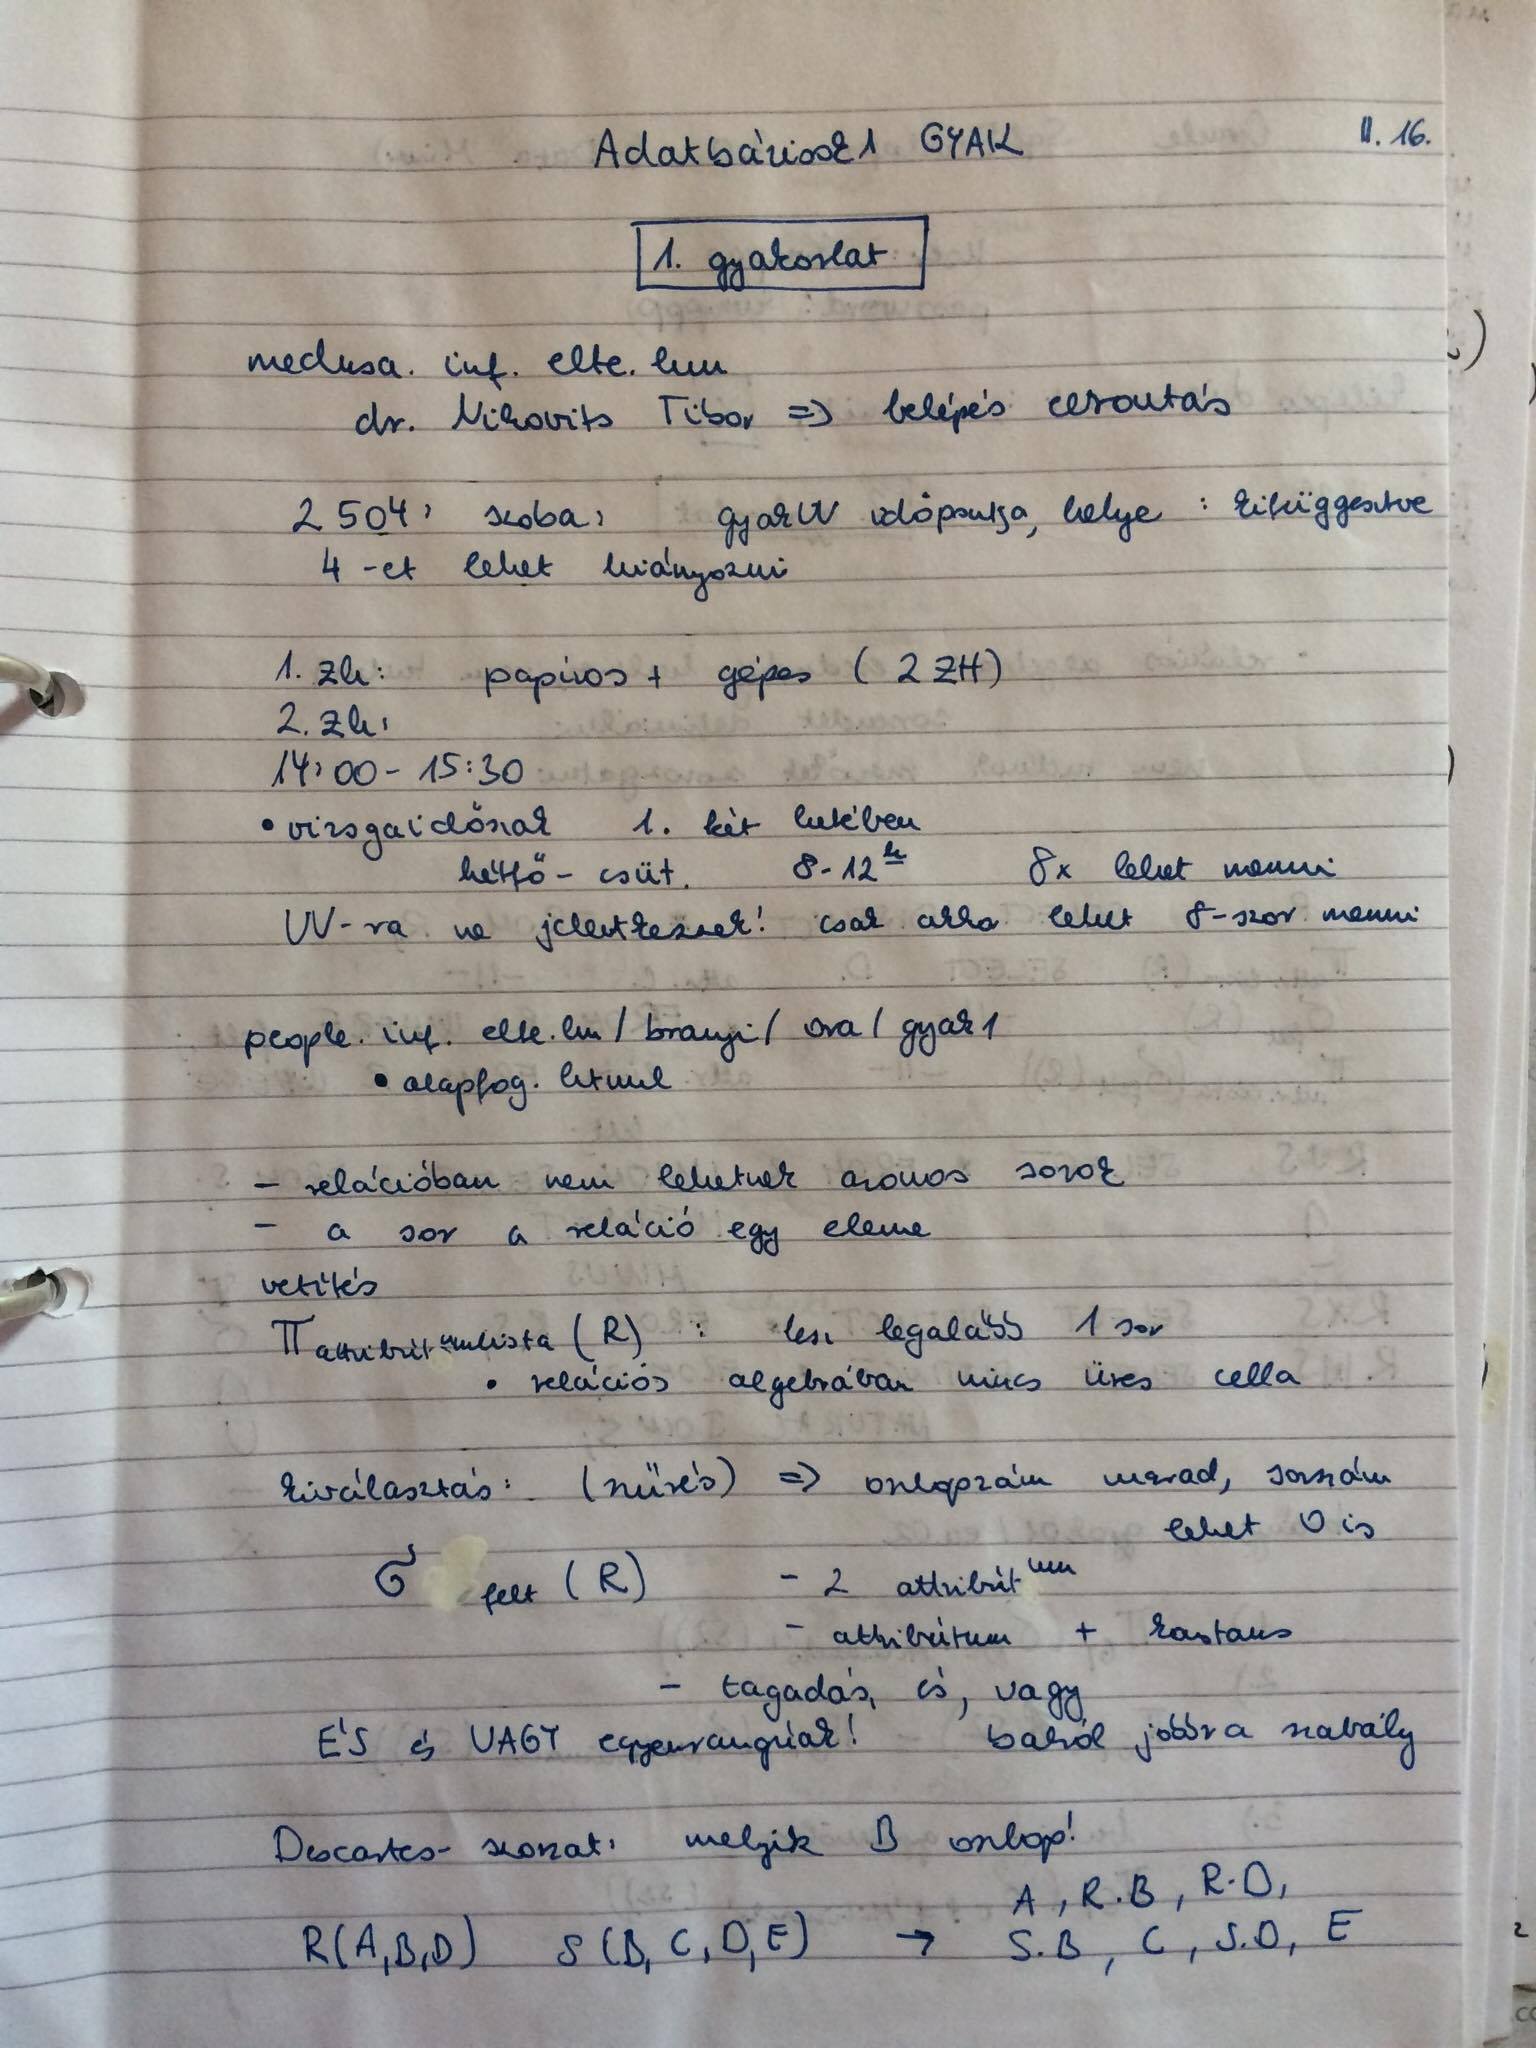 Adatbázisok 1 GYAK II. 16.
1. gyakorlat
medusa. inf. elte. hu
dr. Nikovits Tibor => belépés
2504. szoba: gyakUV időpontja, helye : kifüggesztve
4-et lehet hiányozni
1. zh: papíros + gépes ( 2 ZH)
2. zh:
14:00 - 15:30
• vizsgaidőszak 1. két hetében
hétfő - csüt. 8-12 h 8x lehet menni
UV-ra ne jelentkezzek! csak arra lehet 8-szor menni
people. inf. elte.hu / branyi / ora / gyak1
• alapfog. html
- relációban nem lehetnek azonos sorok
- a sor a reláció egy eleme
vetítés
π attribútumlista (R) : lesz legalább 1 sor
• relációs algebrában nincs üres cella
kiválasztás: (szűrés) => oszlopszám marad, sorszám
lehet 0 is
σ felt (R) - 2 attribútum
- attribútum + konstans
- tagadás, és, vagy
ÉS és VAGY egyenrangúak! balról jobbra szabály
Descartes-szorzat: melyik B oszlop!
A, R.B, R.D,
R(A,B,D) S(B,C,D,E) → S.B, C, S.D, E